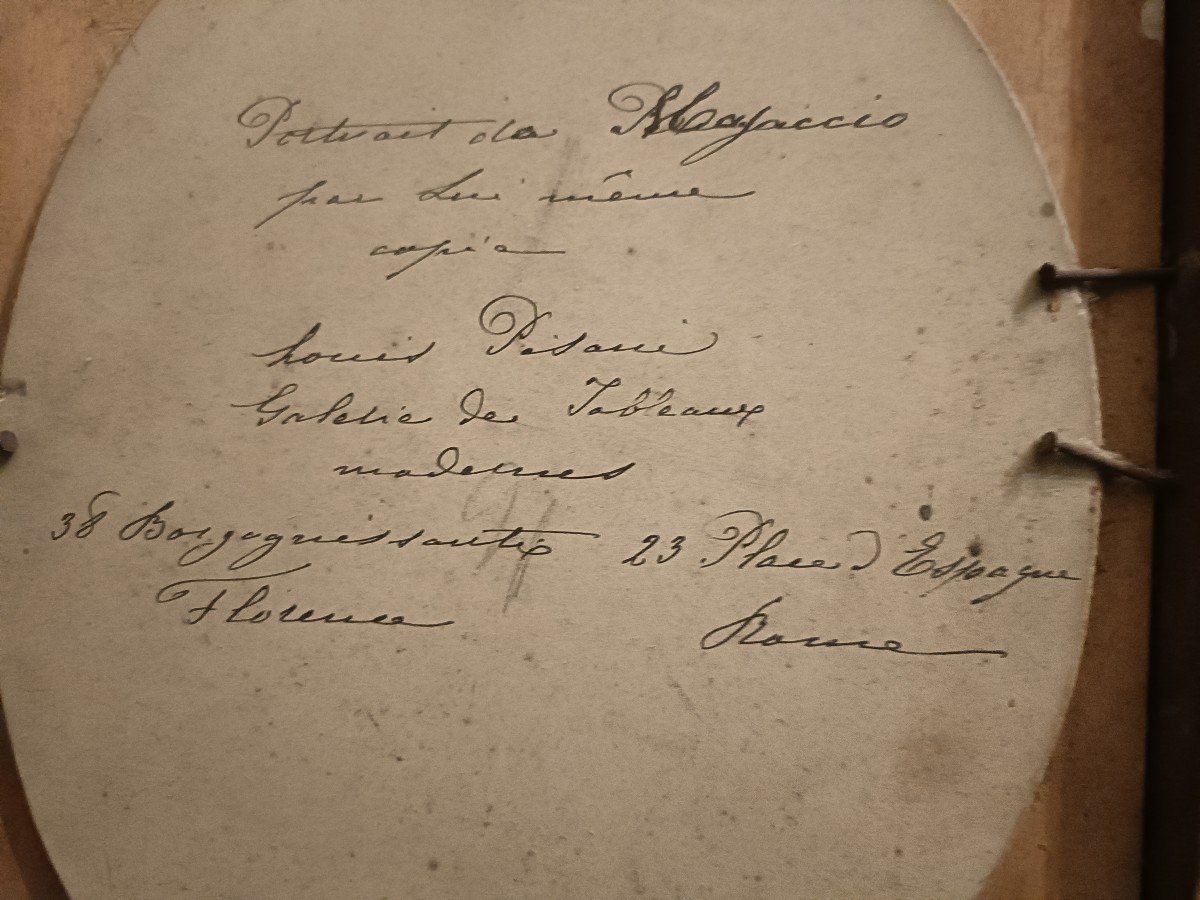 Portrait de Masaccio
par Lui même
copie
Louis Pisani
Galerie de Tableaux
modernes
38 Borgognissanti 23 Place d'Espagne
Florence Rome